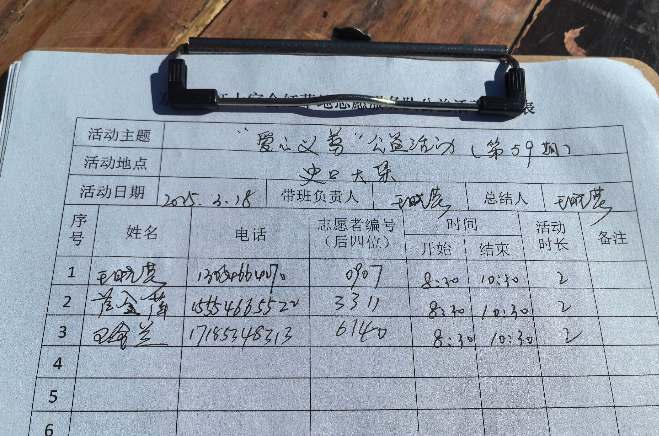 活动主题 "爱心义剪"公益活动(第59期)
活动地点 史口大集
活动日期 2025.3.18 带班负责人 王晓莹 总结人 王晓莹
序号 姓名 电话 志愿者编号(后四位) 时间 开始 结束 活动时长 备注
1 王晓莹 0907 8:30 10:30 2
2 15554665522 3311 8:30 10:30 2
3 17185348313 6140 8:30 10:30 2
4
5
6